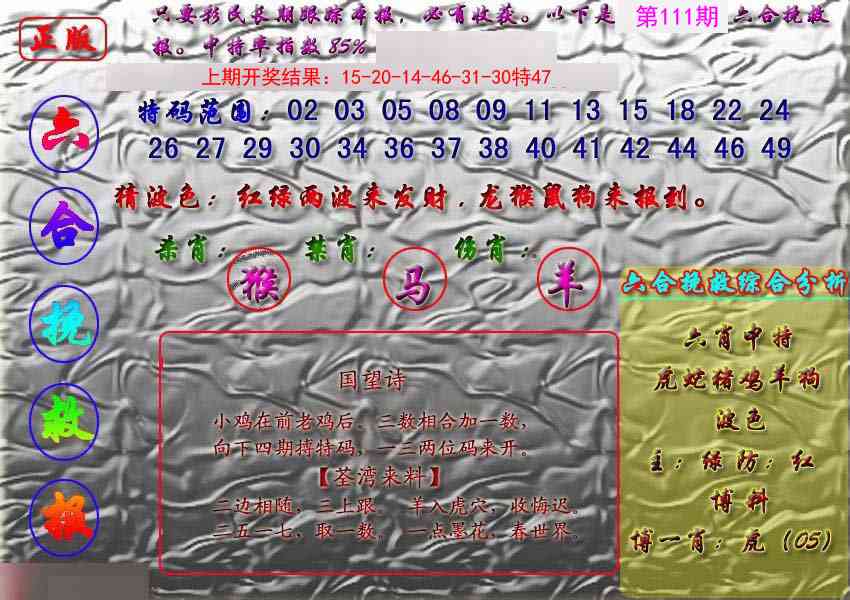 正版
只要彩民长期跟踪本报，必有收获。以下是 第111期 六合挽救
报。中特率指数85%
上期开奖结果：15-20-14-46-31-30特47
特码范围：02 03 05 08 09 11 13 15 18 22 24
26 27 29 30 34 36 37 38 40 41 42 44 46 49
猜波色：红绿两波来发财，龙猴鼠狗来报到。
六合挽救报
杀肖：猴 禁肖：马 伤肖：羊
国望诗
小鸡在前老鸡后、三数相合加一数，
向下四期搏特码，一三两位码来开。
【荃湾来料】
二边相随，三上跟。 羊入虎穴，收悔迟。
二五一七，取一数。 一点墨花，春世界。
六合挽救综合分析
六肖中特
虎蛇猪鸡羊狗
波色
主：绿 防：红
博料
博一肖：虎（05）